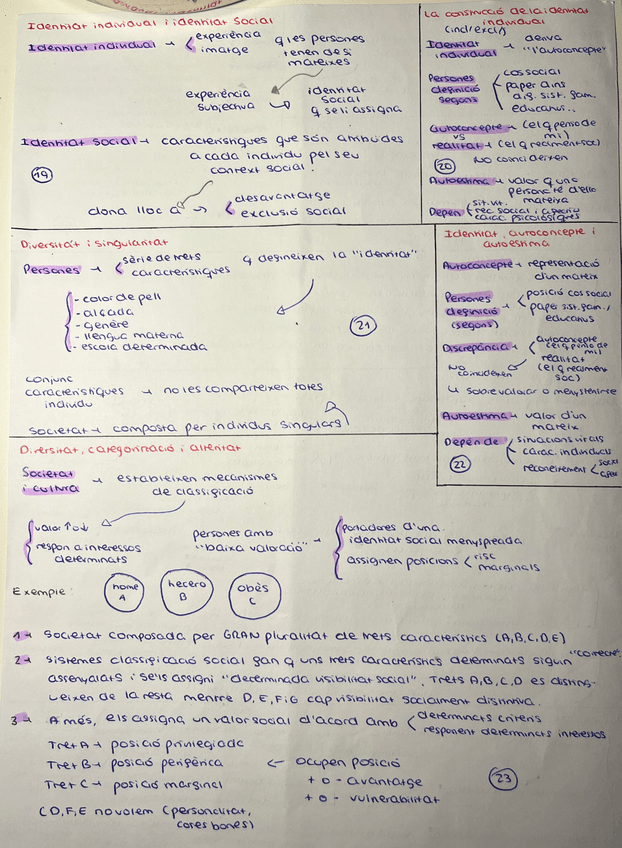 Identitat individual i identitat social
Identitat individual → experiència
imatge
q les persones
tenen de si
mateixes
experiència
subjectiva
identitat
social
q se li assigna
Identitat social → característiques que són atribuïdes
a cada individu pel seu
context social.
19
dona lloc a → desavantatge
exclusió social
La construcció de la identitat
individual
(incl/excl)
Identitat
individual → deriva
"l'autoconcepte"
Persones
definició
segons
cos social
paper dins
sist. fam.
educatius..
Autoconcepte → (el q penso de
mi)
vs
realitat → (el q rec
20
no coincideixen
Autoestima → valor q una
persona té d'ella
mateixa
Depèn
sit. vit.
rec. social i afectiu
carac. psicològiques
Diversitat i singularitat
Persones → sèrie de trets
característiques
q defineixen la "identitat"
- color de pell
- alçada
- gènere
- llengua materna
- escola determinada
21
conjunt
característiques → no les comparteixen totes
individu
Societat → composta per individus singulars
Identitat, autoconcepte i
autoestima
Autoconcepte → representació
d'un mateix
Persones
definició
(segons)
posició cos social
paper sist. fam./
educatius
Discrepància →
autoconcepte
(el q penso de
mi)
realitat
(el q
soc)
no
coincideixen
↳ sobrevalorar o menystenirse
Autoestima → valor d'un
mateix
Depèn de
situacions vitals
carac. individuals
reconeixement < social
afec.
22
Diversitat, categorització i alteritat
Societat
i cultura → estableixen mecanismes
de classificació
valor ↑o↓
respon a interessos
determinats
persones amb
"baixa valoració" →
portadores d'una
identitat social menyspreada
assignen posicions < risc
marginals
Exemple:
home
A
hetero
B
obès
C
1→ Societat composada per GRAN pluralitat de trets característics (A,B,C,D,E)
2→ Sistemes classificació social fan q uns trets característics determinats siguin "correcte"
assenyalats i se'ls assigni "determinada visibilitat social". Trets A,B,C,D es disting-
ueixen de la resta mentre D,E,F i G cap visibilitat socialment distintiva.
3→ A més, els assigna un valor social d'acord amb < determinats criteris
responent determinats interessos
Tret A → posició privilegiada
Tret B → posició perifèrica ← ocupen posició
Tret C → posició marginal + o - avantatge
+ o - vulnerabilitat
23
(D,F,E no volem (personalitat,
coses bones)